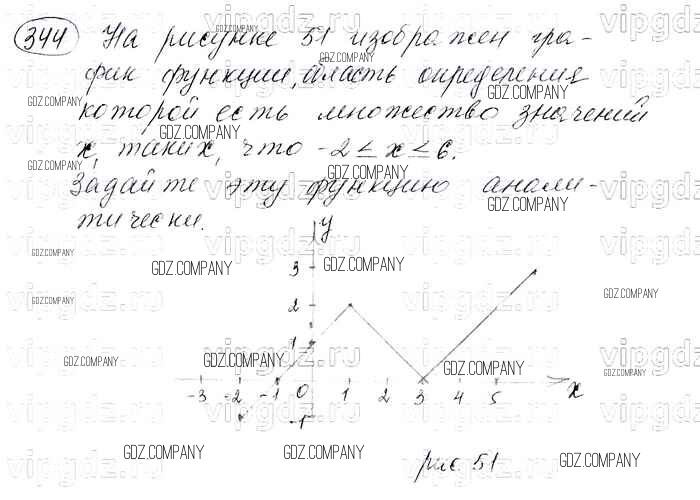 344 На рисунке 51 изображен гра-
фик функции, область определения
которой есть множество значений
x, таких, что -2 ≤ x ≤ 6.
Задайте эту функцию анали-
тически.
y
3
2
1
-3 -2 -1 0 1 2 3 4 5 x
-1
рис 51
GDZ.COMPANY
vipgdz.ru